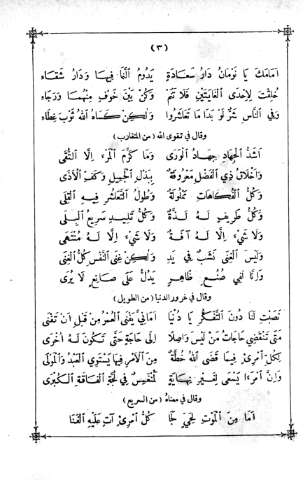 (٣)
أَمَامَكَ يَا نَوْمَانُ دَارُ سَعَادَةٍ يَدُومُ الْبَقَا فِيهَا وَدَارُ شَقَاءِ
خُلِقْتَ لِإِحْدَى الْغَايَتَيْنِ فَلَا تَنَمْ وَكُنْ بَيْنَ خَوْفٍ مِنْهُمَا وَرَجَاءِ
وَفِي النَّاسِ شَرٌّ لَوْ بَدَا مَا تَعَاشَرُوا وَلٰكِنْ كَسَاهُ اللهُ ثَوْبَ غِطَاءِ
وقال في تقوى الله (من المتقارب)
أَشَدُّ الْجِهَادِ جِهَادُ الْهَوَى وَمَا كَرَّمَ الْمَرْءَ إِلَّا التُّقَى
وَأَخْلَاقُ ذِي الْفَضْلِ مَعْرُوفَةٌ بِبَذْلِ الْجَمِيلِ وَكَفِّ الْأَذَى
وَكُلُّ الْفُكَاهَاتِ مَمْلُولَةٌ وَطُولُ التَّعَاشُرِ فِيهِ الْقِلَى
وَكُلُّ طَرِيفٍ لَهُ لَذَّةٌ وَكُلُّ تَلِيدٍ سَرِيعُ الْبِلَى
وَلَا شَيْءَ إِلَّا لَهُ آفَةٌ وَلَا شَيْءَ إِلَّا لَهُ مُنْتَهَى
وَلَيْسَ الْغِنَى نَشَبٌ فِي يَدٍ وَلٰكِنْ غِنَى النَّفْسِ كُلُّ الْغِنَى
وَإِنَّا لَفِي صُنُعٍ ظَاهِرٍ يَدُلُّ عَلَى صَانِعٍ لَا يُرَى
وقال في غرور الدنيا (من الطويل)
نَصَبْتِ لَنَا دُونَ التَّفَكُّرِ يَا دُنْيَا أَمَانِيَّ يَفْنَى الْعُمْرُ مِنْ قَبْلِ أَنْ تَفْنَى
مَتَى تَنْقَضِي حَاجَاتُ مَنْ لَيْسَ وَاصِلًا إِلَى حَاجَةٍ حَتَّى تَكُونَ لَهُ أُخْرَى
لِكُلِّ امْرِئٍ فِيمَا قَضَى اللهُ خُطَّةٌ مِنَ الْأَمْرِ فِيهَا يَسْتَوِي الْعَبْدُ وَالْمَوْلَى
وَإِنَّ امْرَءًا يَسْعَى لِغَيْرِ نِهَايَةٍ لَمُنْغَمِسٌ فِي لُجَّةِ الْفَاقَةِ الْكُبْرَى
وقال في معناه (من السريع)
أَمَا مِنَ الْمَوْتِ لِحَيٍّ نَجَا كُلُّ امْرِئٍ آتٍ عَلَيْهِ الْفَنَا